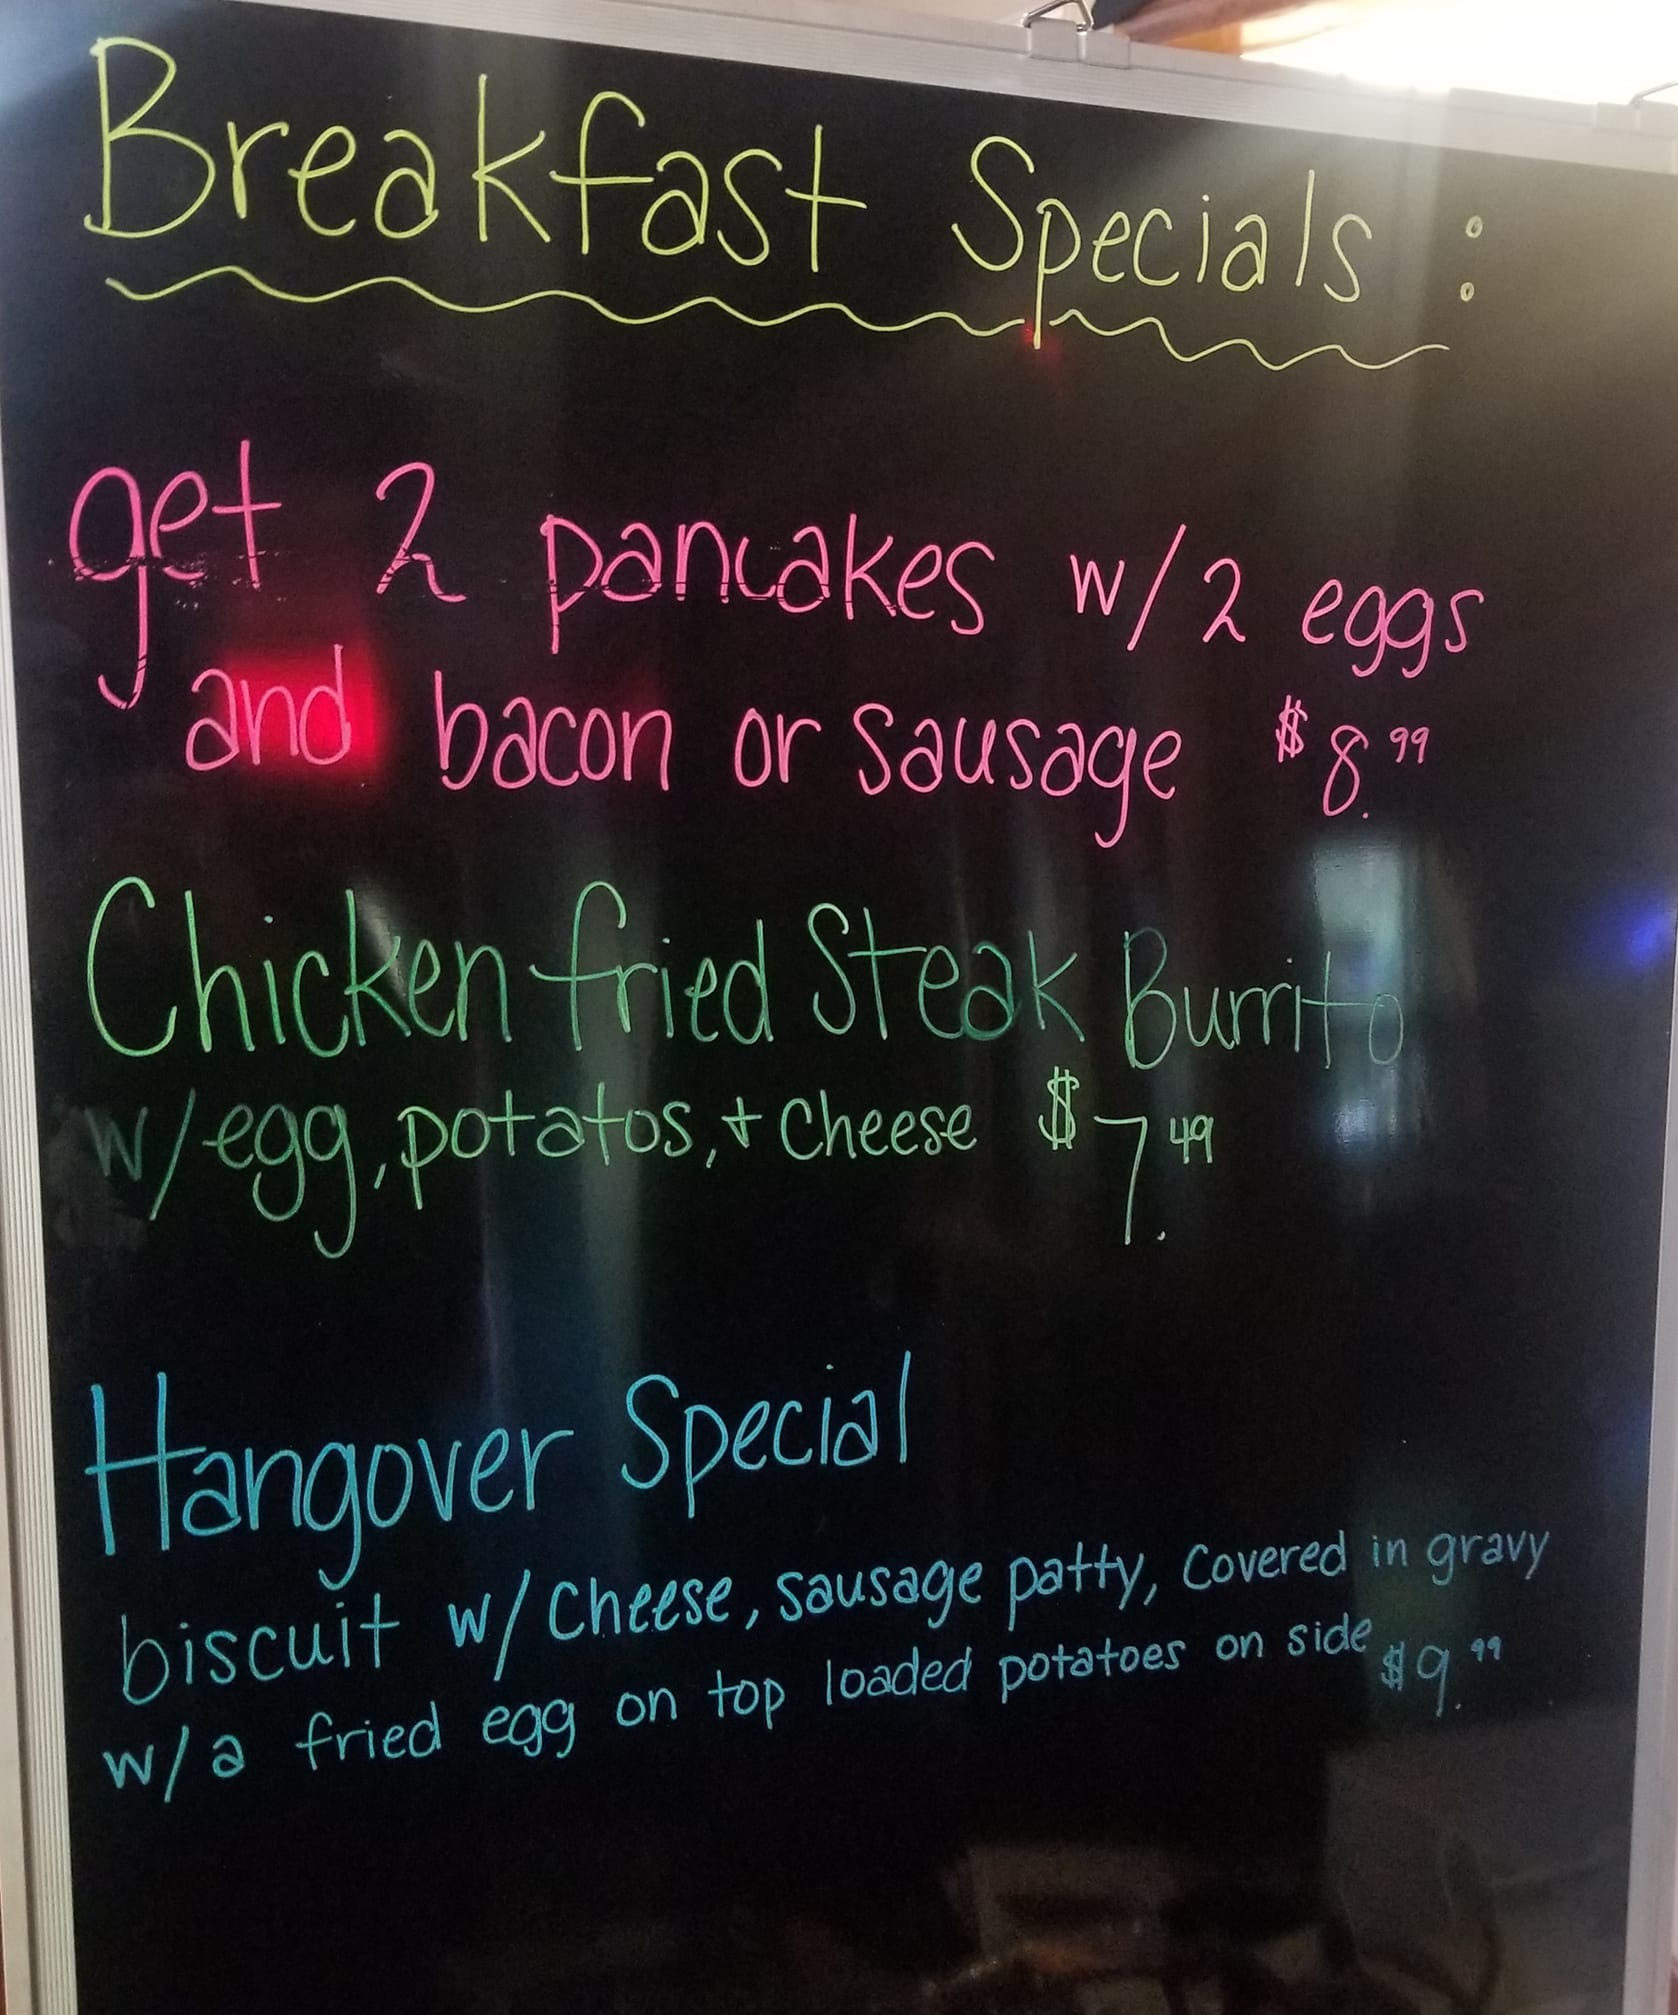 Breakfast Specials :
get 2 pancakes w/2 eggs
and bacon or sausage $8.99
Chicken fried Steak Burrito
w/egg, potatos, + cheese $7.49
Hangover Special
biscuit w/ cheese, sausage patty, covered in gravy
w/a fried egg on top loaded potatoes on side $9.99